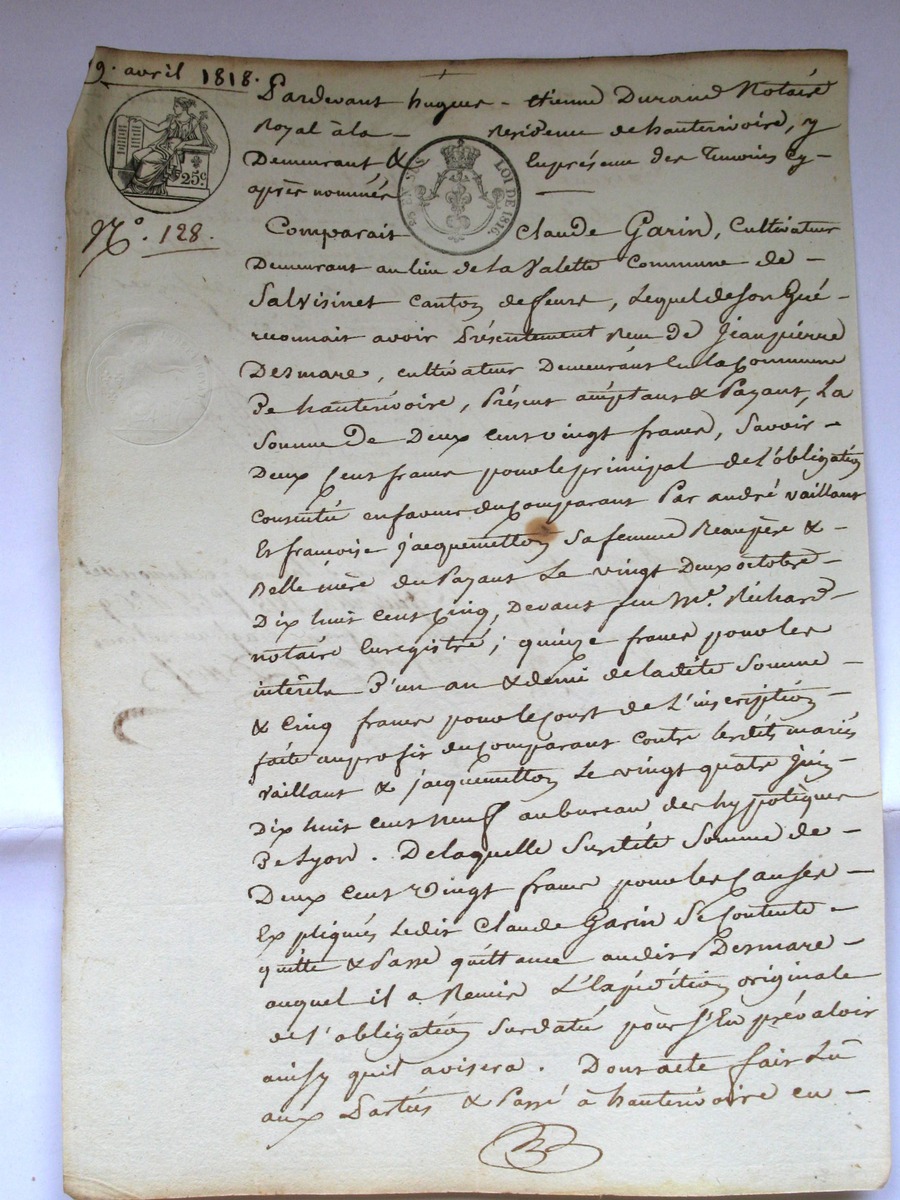 9. avril 1818.
25c
EN SUS
LOI DE 1816.
N.° 128.
Pardevant hugues - etienne Durand Notaire
Royal à la - Residence de hauterivoire, y
Demeurant & En présence des Temoins Cy-
après nommés
Comparait Claude Garin, Cultivateur
Demeurant au lieu de la Valette Commune de -
Salvisinet canton de feurs, Lequel de son Gré -
reconnait avoir Présentement Reçu de Jean pierre
Desmare, cultivateur Demeurant En la Commune
De hauterivoire, Présent acceptant & Payant, La
Somme De Deux cent vingt francs, Savoir -
Deux Cent francs pour le principal de L'obligation
Consentie en faveur du Comparant Par andré vaillant
Et françoise jacquemetton Sa femme Beaupère &
Belle mère du Payant Le vingt Deux octobre
Dix huit Cent Cinq, Devant feu M.e Richard
notaire Enregistré; quinze francs pour les
intérêts D'un an & demi de la dite Somme -
& Cinq francs pour le Cout de L'inscription -
faite au profit du Comparant contre lesdits mariés
vaillant & jacquemetton Le vingt quatre juin
Dix huit Cent neuf au bureau des hypotèques
De Lyon. De laquelle Susdite Somme de -
Deux Cent vingt francs pour les Causes -
Expliqués Ledit Claude Garin Se Contente -
quitte & Passe quittance audit Desmare -
auquel il a Remis L'Expédition originale
de l'obligation Sus datée pour S'En prévaloir
ainsy qu'il avisera. Dont acte fait Lu
aux Parties & Passé à hauterivoire en -